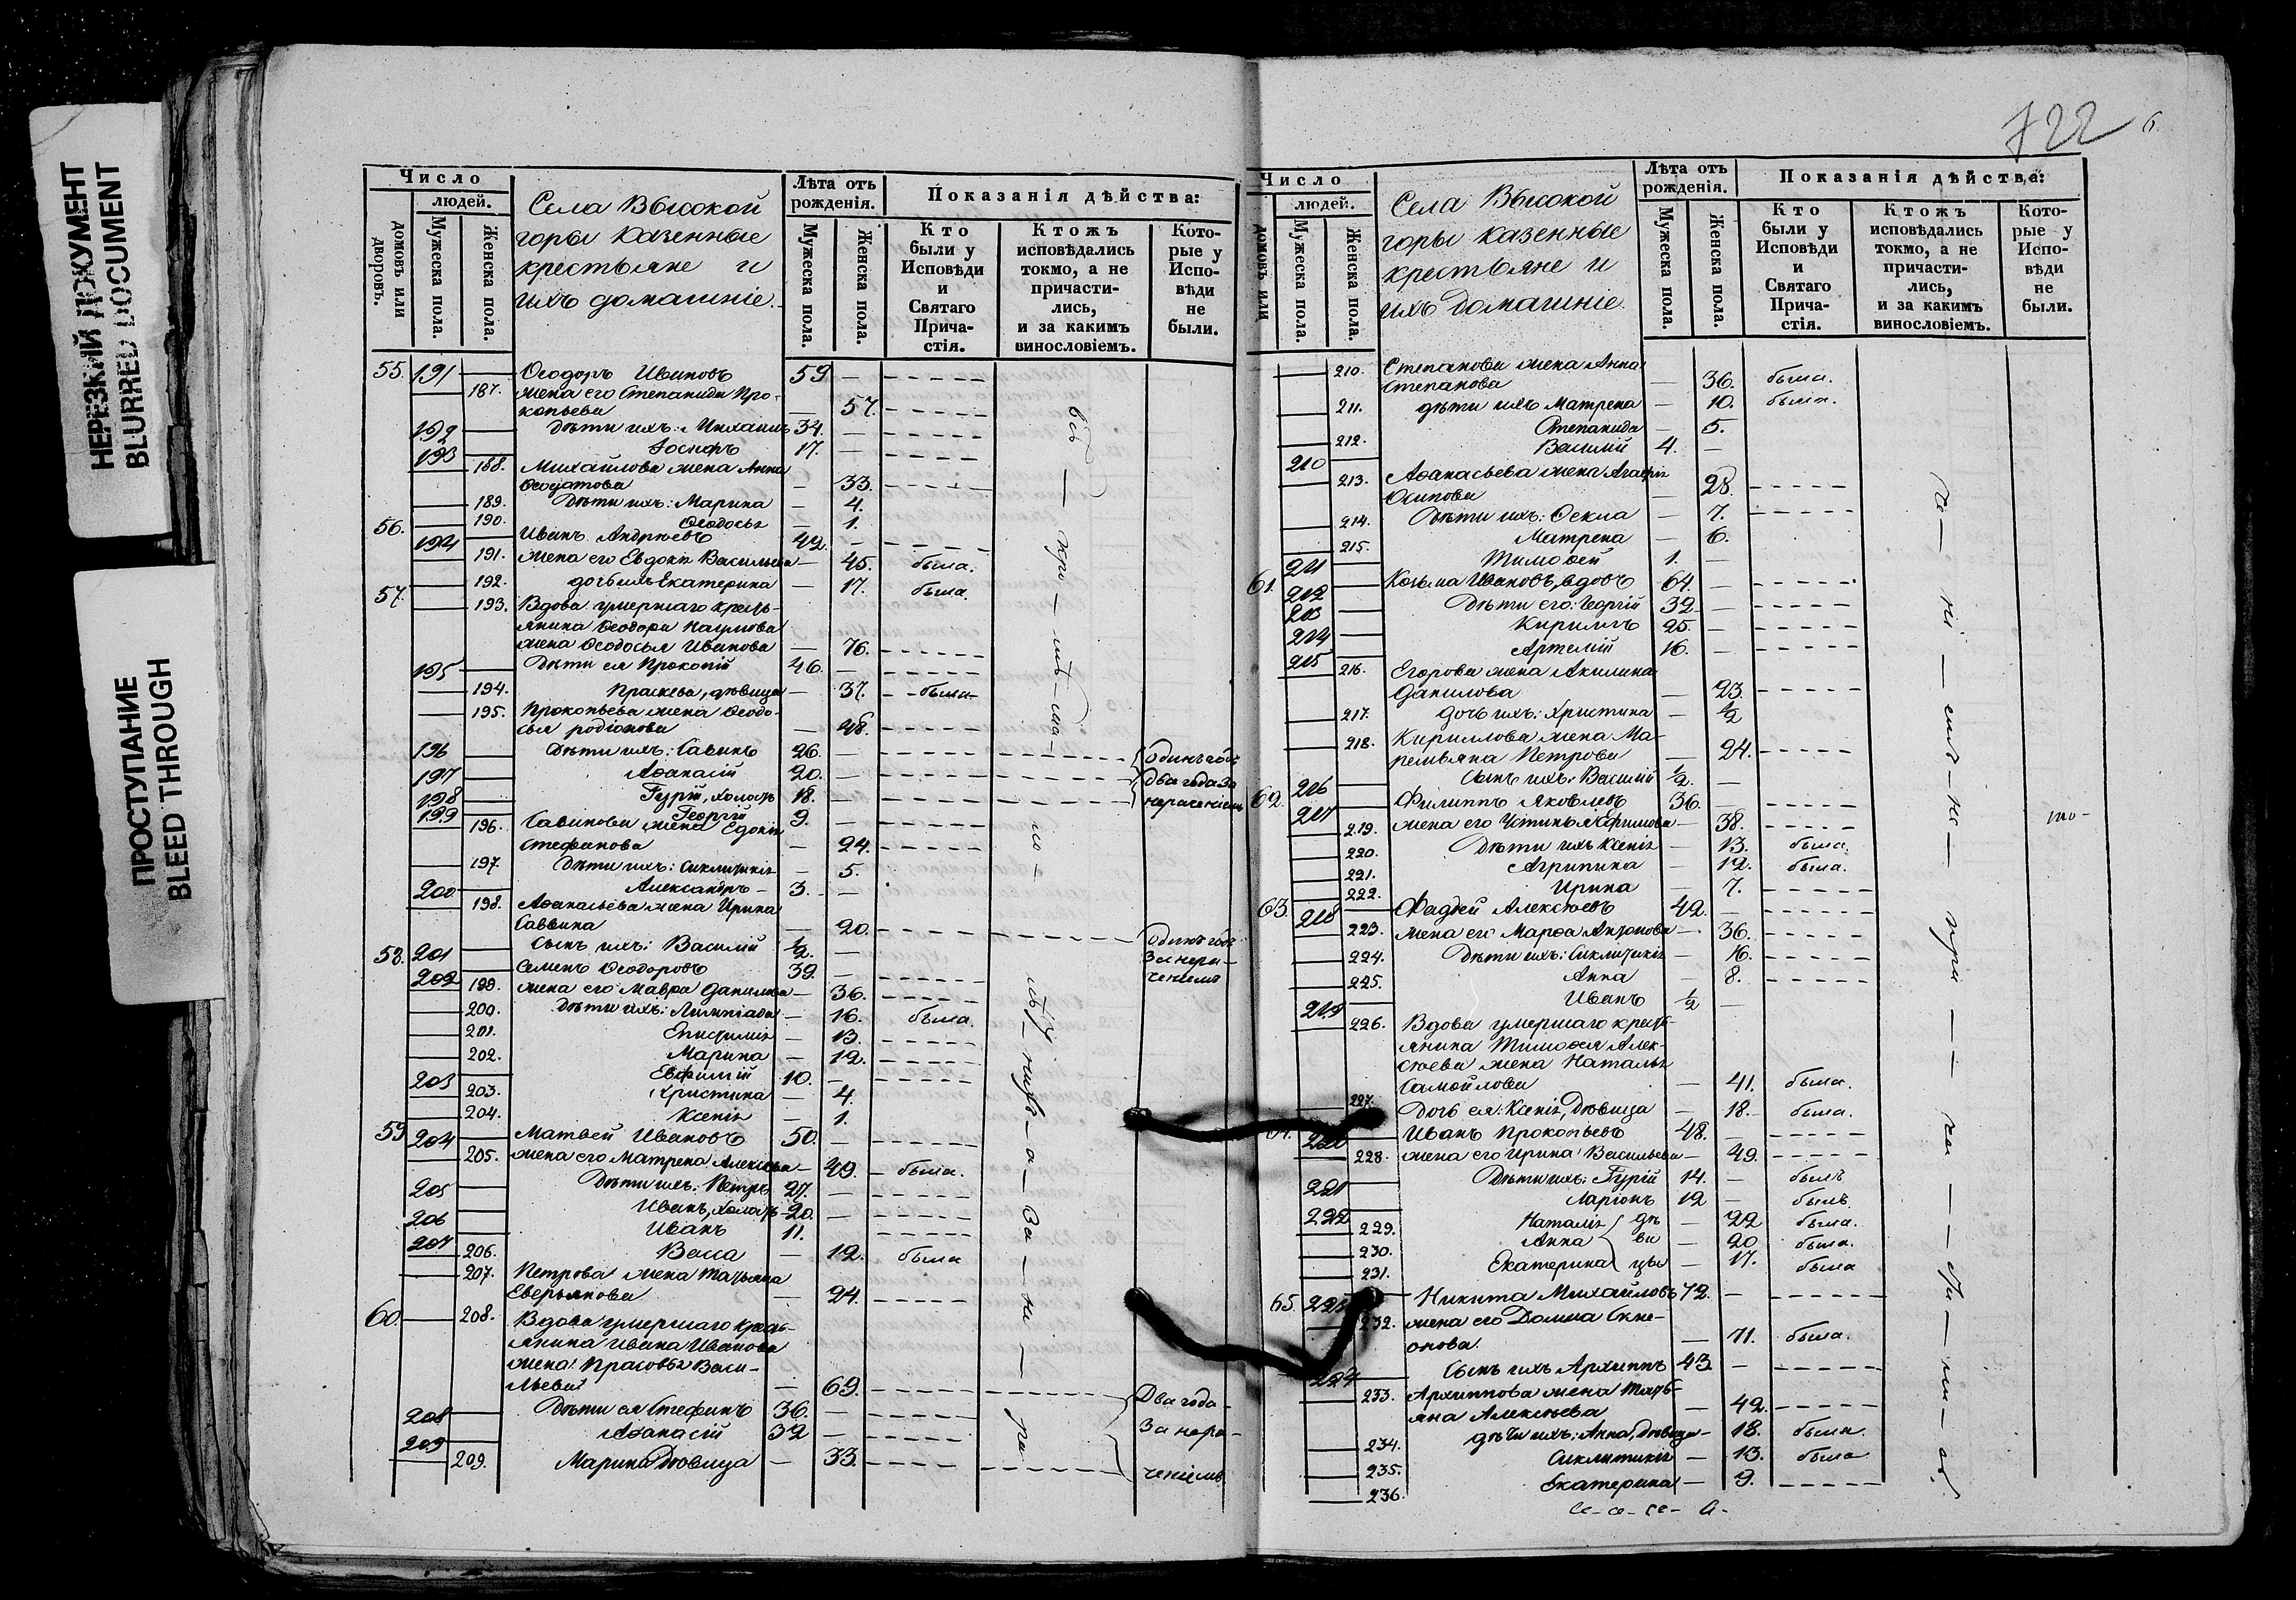 НЕРЕЗКИЙ ДОКУМЕНТ
BLURRED DOCUMENT
ПРОСТУПАНИЕ
BLEED THROUGH
Число
людей.
домовъ или дворовъ.
Мужеска пола.
Женска пола.
Села Высокой
горы казенные
крестьяне и
ихъ домашніе.
Лѣта отъ рожденія.
Мужеска пола.
Женска пола.
Показанія дѣйства:
Кто были у Исповѣди и Святаго Прича-стія.
Ктожъ исповѣдались токмо, а не причасти-лись, и за какимъ винословіемъ.
Кото-рые у Испо-вѣди не были.
55. 191 Ѳеодоръ Ивановъ 59 —
187. жена его Степанида Про-
копьева — 57.
192 Дѣти ихъ: Михаилъ 34. —
193 Іосифъ 17. —
188. Михайлова жена Анна
— 33.
189. Дѣти ихъ: Марина — 4.
190. Ѳеодосья — 1.
56. 194 Иванъ Андреевъ 42. —
191. жена его Евдокія Васильева — 45. была.
192. дочь ихъ Екатерина — 17. была.
57. 193. Вдова умершаго кресть-
янина Ѳеодора Наумова
жена Ѳеодосья Иванова — 76.
195 Дѣти ея Прокопій 46. —
194. Праскева, дѣвица — 37. была
195. Прокопьева жена Ѳеодо-
сья родіонова — 48.
196 Дѣти ихъ: Савинъ 26. — Одинъ годъ
197 Аѳанасій 20. — Два года За
198 Гурій, холостъ 18. — нераченіемъ
199 Георгій 9. —
196. Савинова жена Едокія
Стефанова — 24.
197. Дѣти ихъ: Сиклитикія — 5.
200 Александръ 3. —
198. Аѳанасьева жена Ирина
Саввина — 20.
201 Сынъ ихъ: Василій ½. — Одинъ годъ
58. 202 Семенъ Ѳеодоровъ 39. — За нера-
199. жена его Мавра Данилова — 36. ченіемъ
200. Дѣти ихъ: Лимпіада — 16. была.
201. Епистимія — 13.
202. Марина — 12.
203 Евфимій 10. —
203. Христина — 4.
204. Ксенія — 1.
59 204 Матвей Ивановъ 50. —
205. жена его Матрена Алексѣева — 49. была.
205 Дѣти ихъ: Петръ 27. —
206 Иванъ, холостъ 20. —
207 Иванъ 11.
206. Васса — 12. была
207. Петрова жена Татьяна
— 24.
60. 208. Вдова умершаго кресть-
янина Ивана Иванова
жена Прасовья Васи-
льева — 69.
208 Дѣти ея Стефанъ 36. — Два года
209 Аѳанасій 32 — За нера-
209. Марина Дѣвица — 33. ченіемъ
722
Число
людей.
домовъ или
Мужеска пола.
Женска пола.
Села Высокой
горы казенные
крестьяне и
ихъ домашніе.
Лѣта отъ рожденія.
Мужеска пола.
Женска пола.
Показанія дѣйства:
Кто были у Исповѣди и Святаго Прича-стія.
Ктожъ исповѣдались токмо, а не причасти-лись, и за какимъ винословіемъ.
Кото-рые у Испо-вѣди не были.
210. Степанова жена Анна
Степанова — 36. была.
211. дѣти ихъ Матрена — 10. была.
212. Степанида — 5.
210 Василій 4. —
213. Аѳанасьева жена Агафія
Осипова — 28.
214. Дѣти ихъ: Ѳекла — 7.
215. Матрена — 6.
211 Тимоѳей 1. —
61. 212 Козьма Ивановъ, вдовъ 64. —
213 Дѣти его: Георгій 32. —
214 Кириллъ 25. —
215 Артемій 16. —
216. Егорова жена Акилина
Данилова — 23.
217. дочь ихъ: Христина — ½
218. Кириллова жена Ма-
ремьяна Петрова — 24.
216 Сынъ ихъ: Василій ½. —
62. 217 Филиппъ Яковлевъ 36. —
219. жена его Устинья Ефимова — 38.
220. Дѣти ихъ Ксенія — 13. была.
221. Агрипина — 12. была.
222. Ирина — 7.
63. 218 Фадѣй Алексѣевъ 42. —
223. жена его Марѳа Антонова — 36.
224. Дѣти ихъ: Сиклитикія — 16.
225. Анна — 8.
219 Иванъ ½ —
226. Вдова умершаго кресть-
янина Тимоѳея Алек-
сѣева жена Наталья
Самойлова — 41. была.
227. Дочь ея: Ксенія, Дѣвица — 18. была.
64. 220 Иванъ Прокопьевъ 48. —
228. жена его Ирина Васильева — 49.
221 Дѣти ихъ: Гурій 14. — былъ
222 Ларіонъ 12 — былъ.
229. Наталія дѣ — 22 была.
230. Анна ви — 20 была.
231. Екатерина цы — 17. была
65. 223 Никита Михайловъ 72. —
232. жена его Домна
— 71. была.
224 Сынъ ихъ Архиппъ 43 —
233. Архиппова жена Тать-
яна Алексѣева — 42.
234. дѣти ихъ: Анна, Дѣвица — 18. была.
235. Сиклитикія — 13. была
236. Екатерина — 9.